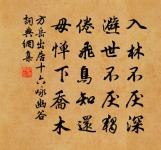 入林不厌深
避世不厌猾
倦飛鳥知還
毋惮下喬木
方岳出居十六咏幽谷
詞典網集